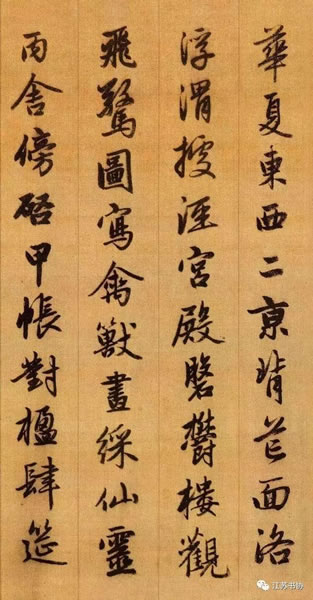 華夏東西二京背芒面洛
浮渭據涇宮殿磐鬱樓觀
飛驚圖寫禽獸畫綵仙靈
丙舍傍啓甲帳對楹肆筵
江苏书协